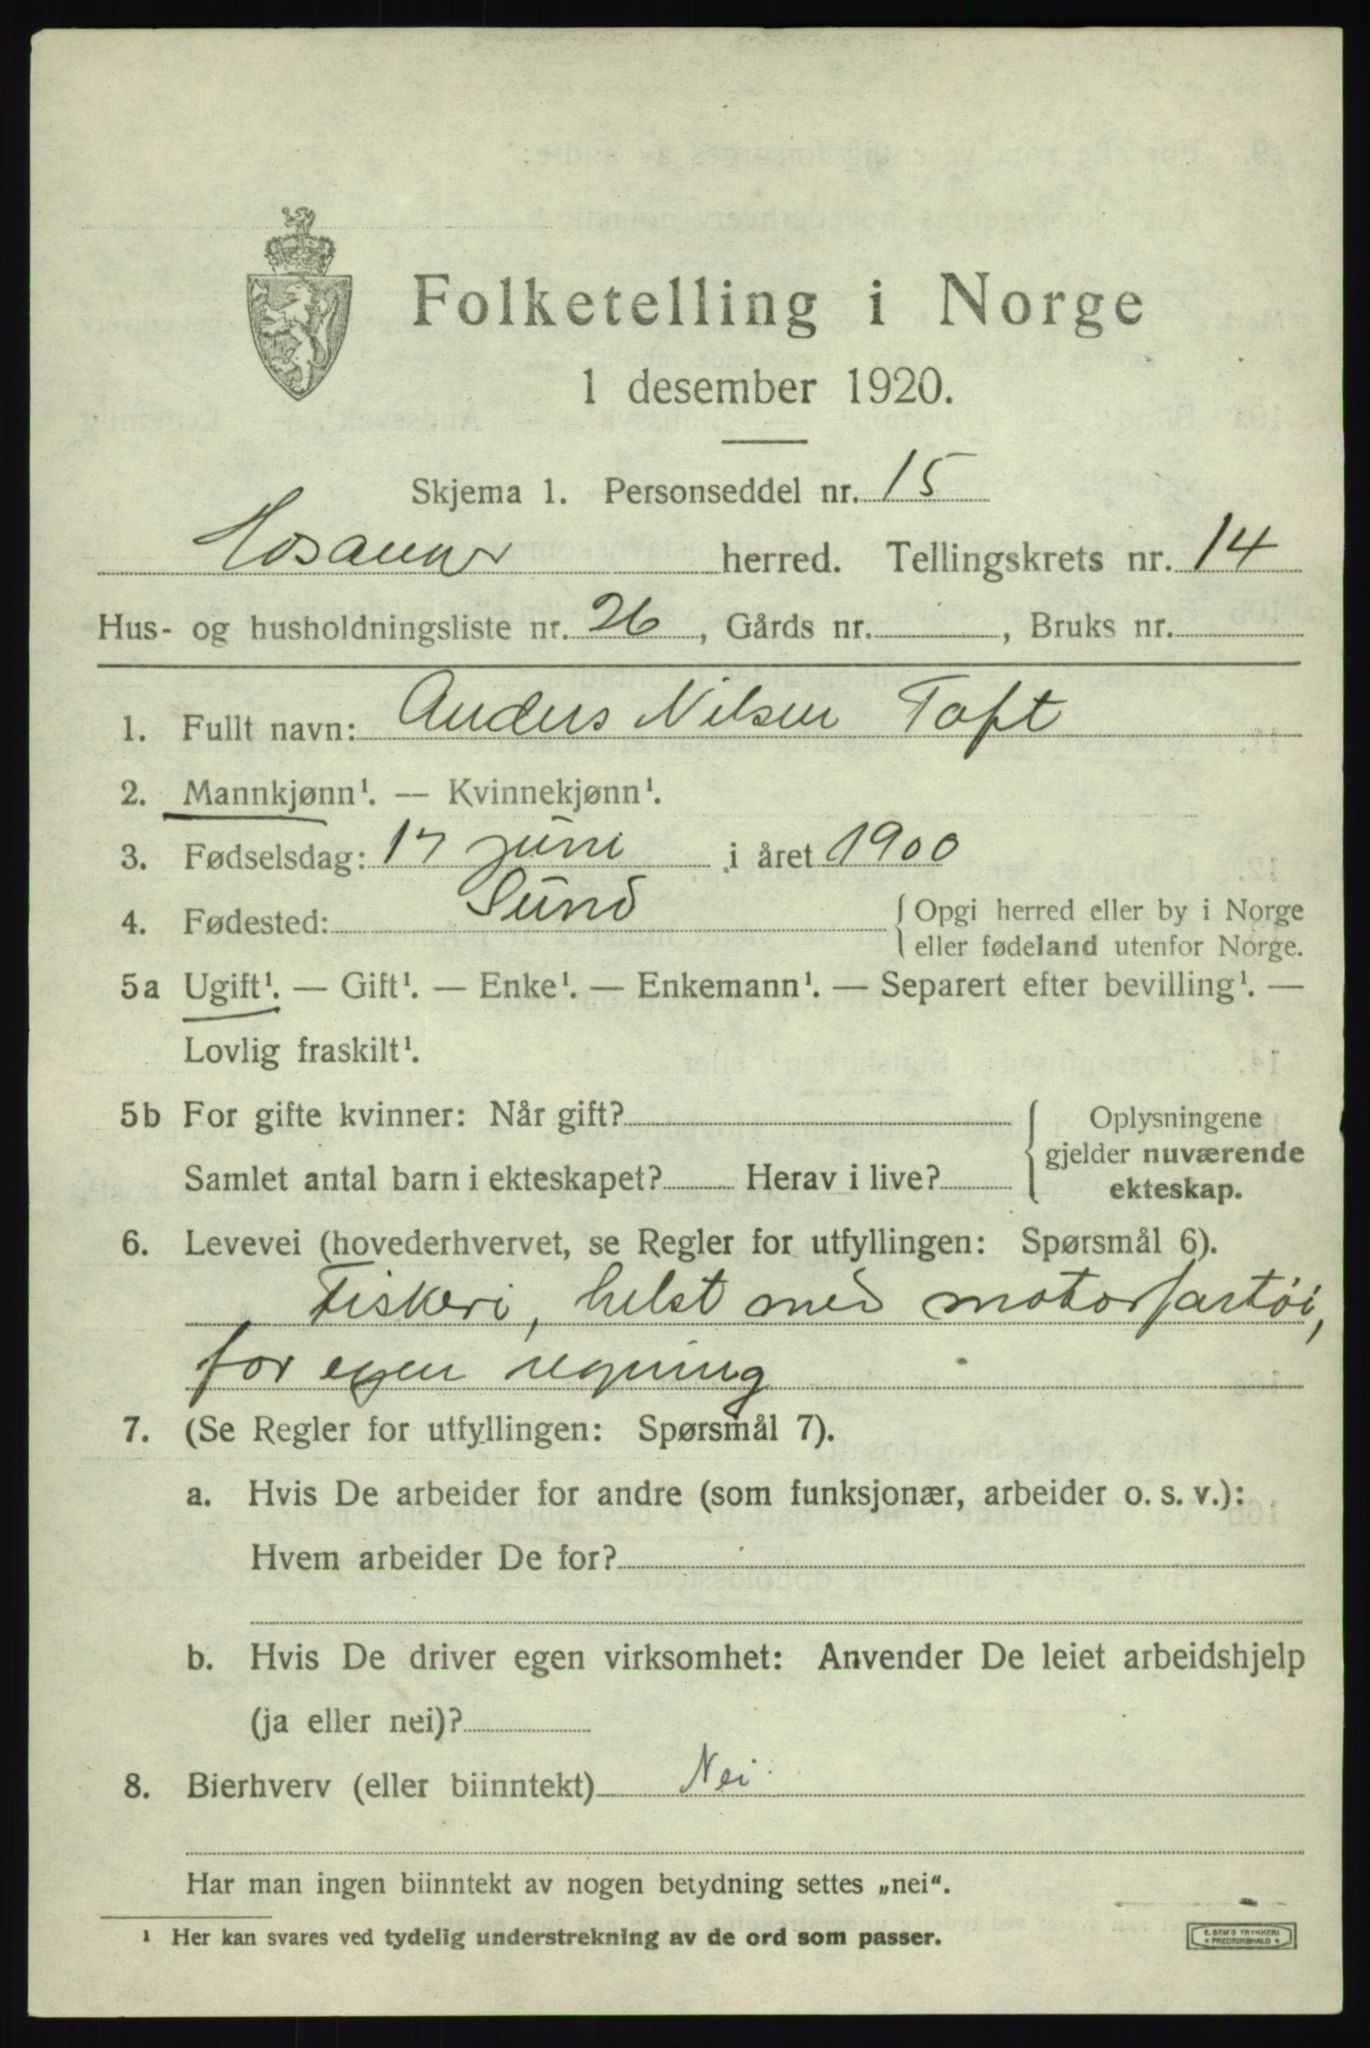 Folketelling i Norge
1 desember 1920.
Skjema 1. Personseddel nr. 15
Hosanner herred. Tellingskrets nr. 14
Hus- og husholdningsliste nr. 26, Gårds nr. , Bruks nr.
1. Fullt navn: Anders Nilsen Toft
2. Mannkjønn¹. — Kvinnekjønn¹.
3. Fødselsdag: 17 juni i året 1900
4. Fødested: Sund { Opgi herred eller by i Norge
eller fødeland utenfor Norge.
5a Ugift¹. — Gift¹. — Enke¹. — Enkemann¹. — Separert efter bevilling¹. —
Lovlig fraskilt¹.
5b For gifte kvinner: Når gift? { Oplysningene
gjelder nuværende
Samlet antal barn i ekteskapet? Herav i live? ekteskap.
6. Levevei (hovederhvervet, se Regler for utfyllingen: Spørsmål 6).
Fiskeri, helst med motorfartøi,
for egen regning
7. (Se Regler for utfyllingen: Spørsmål 7).
a. Hvis De arbeider for andre (som funksjonær, arbeider o. s. v.):
Hvem arbeider De for?
b. Hvis De driver egen virksomhet: Anvender De leiet arbeidshjelp
(ja eller nei)?
8. Bierhverv (eller biinntekt) Nei
Har man ingen biinntekt av nogen betydning settes „nei“.
¹ Her kan svares ved tydelig understrekning av de ord som passer.
E. SEM'S TRYKKERI
* FREDRIKSHALD *